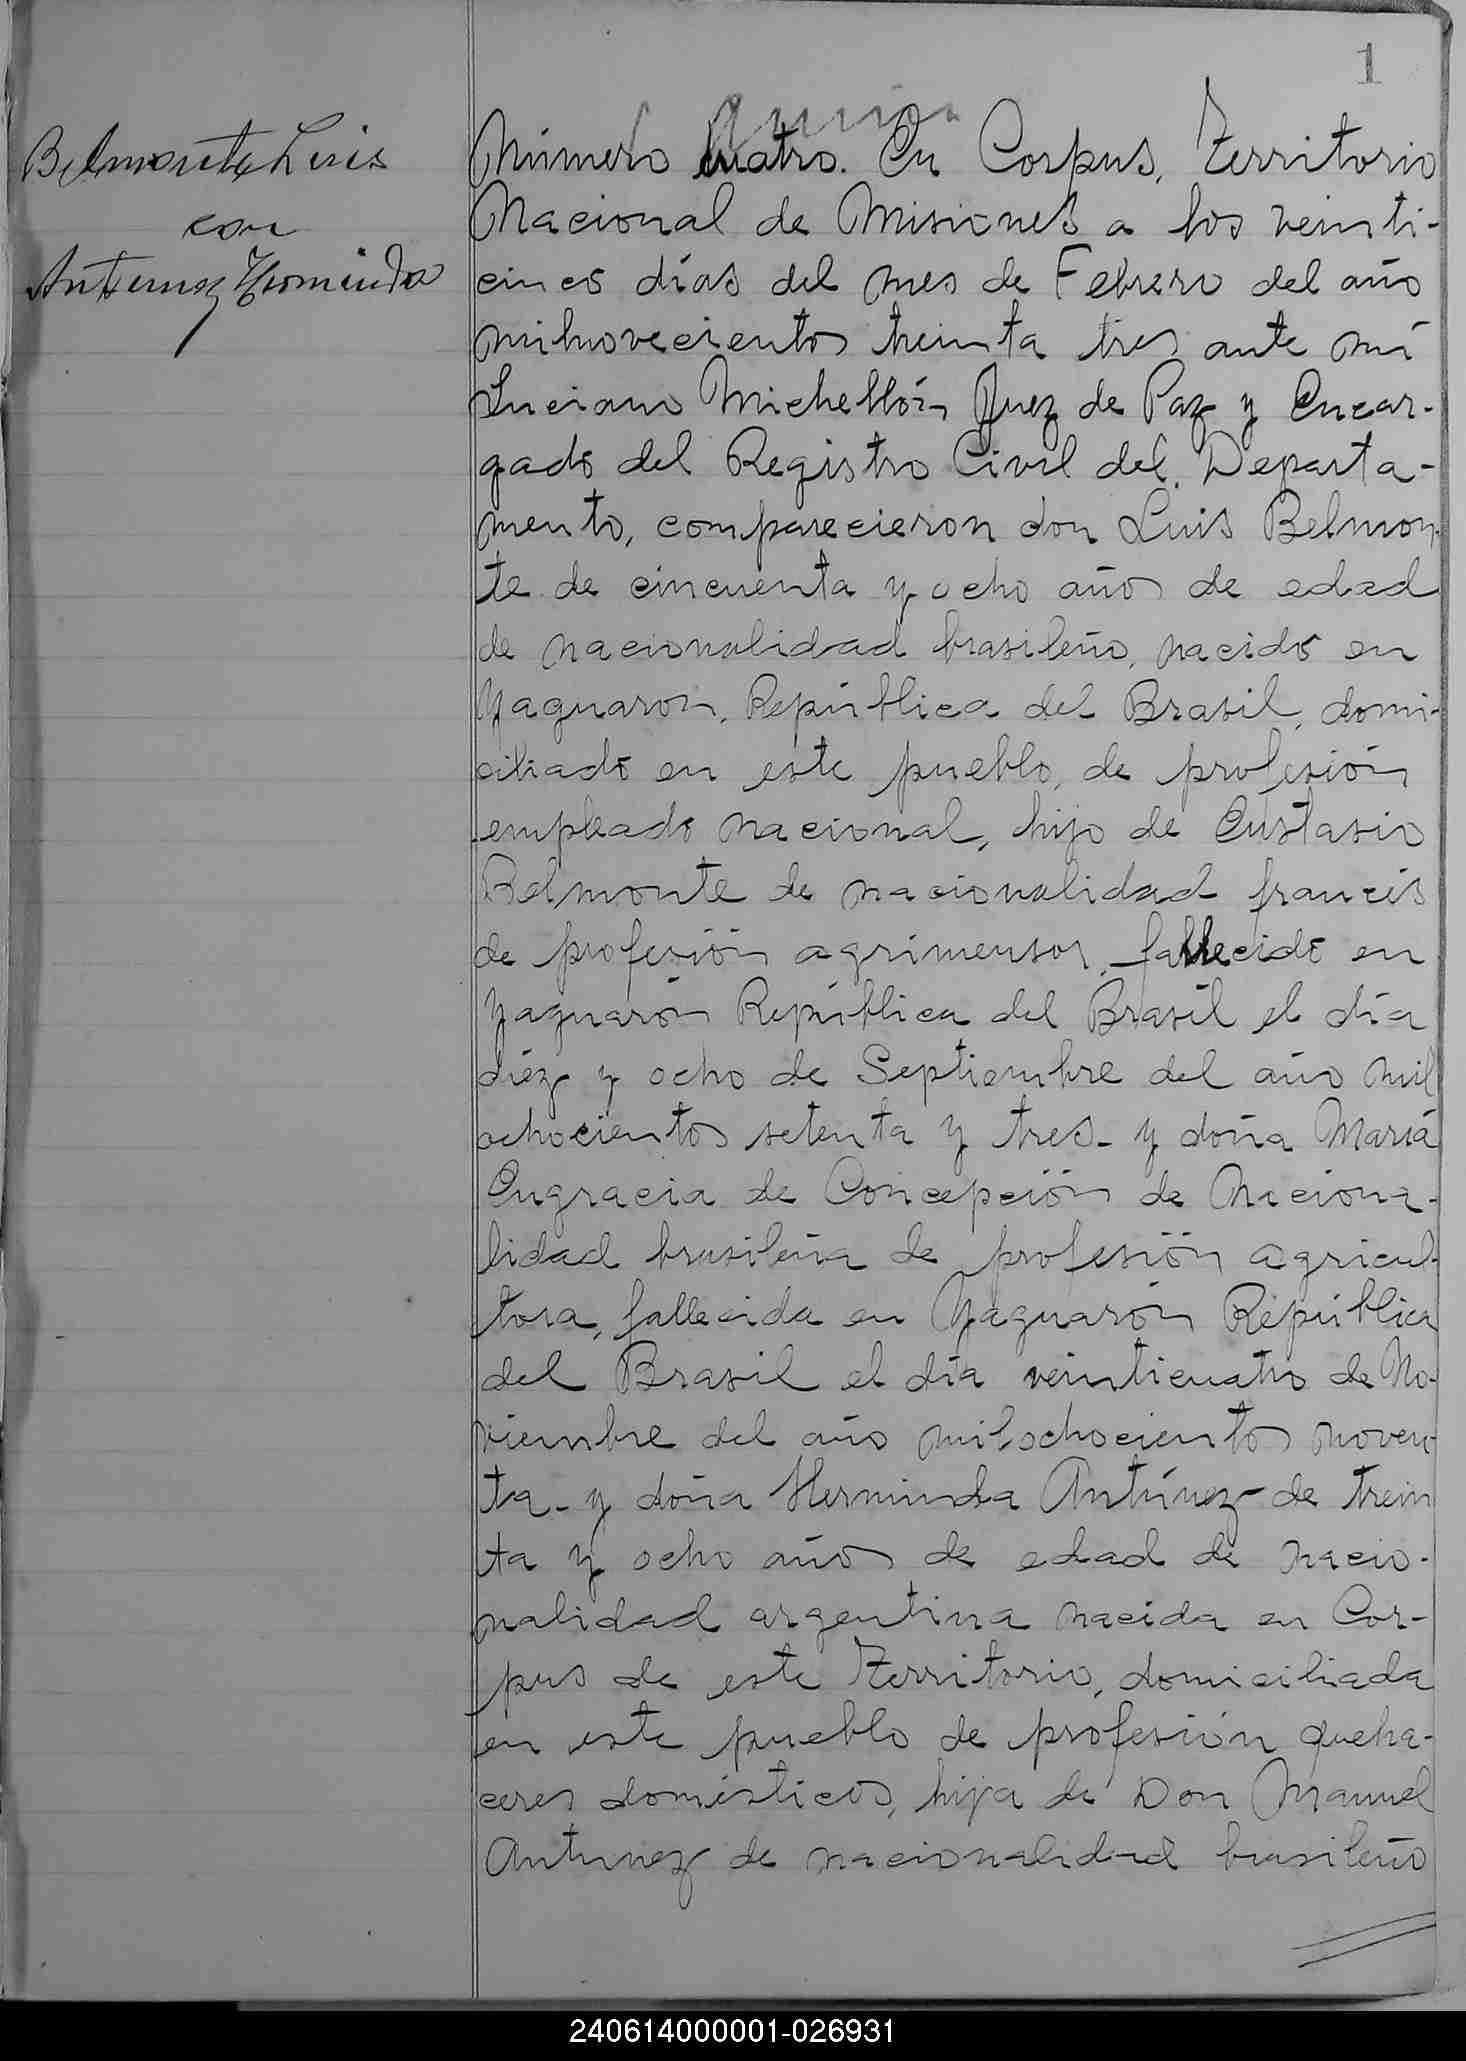 1
Belmonte Luis
con
Antunez Herminda
Número cuatro. En Corpus, Territorio
Nacional de Misiones a los veinti-
cinco días del mes de Febrero del año
milnovecientos treinta tres ante mí
Luciano Michellón Juez de Paz y Encar-
gado del Registro Civil del Departa-
mento, comparecieron don Luis Belmon-
te de cincuenta y ocho años de edad
de nacionalidad brasileño, nacido en
Yaguaron, República del Brasil, domi-
ciliado en este pueblo, de profesión
empleado nacional, hijo de Eustasio
Belmonte de nacionalidad francés
de profesión agrimensor, fallecido en
Yaguarón República del Brasil el día
diez y ocho de Septiembre del año mil
ochocientos setenta y tres- y doña María
Engracia de Concepción de Naciona-
lidad brasileña de profesión agricul-
tora, fallecida en Yaguarón República
del Brasil el día veinticuatro de No-
viembre del año milochocientos noven-
ta- y doña Herminda Antúnez de trein
ta y ocho años de edad de nacio-
nalidad argentina nacida en Cor-
pus de este Territorio, domiciliada
en este pueblo de profesión queha-
ceres domésticos, hija de Don Manuel
Antunez de nacionalidad brasileño
240614000001-026931